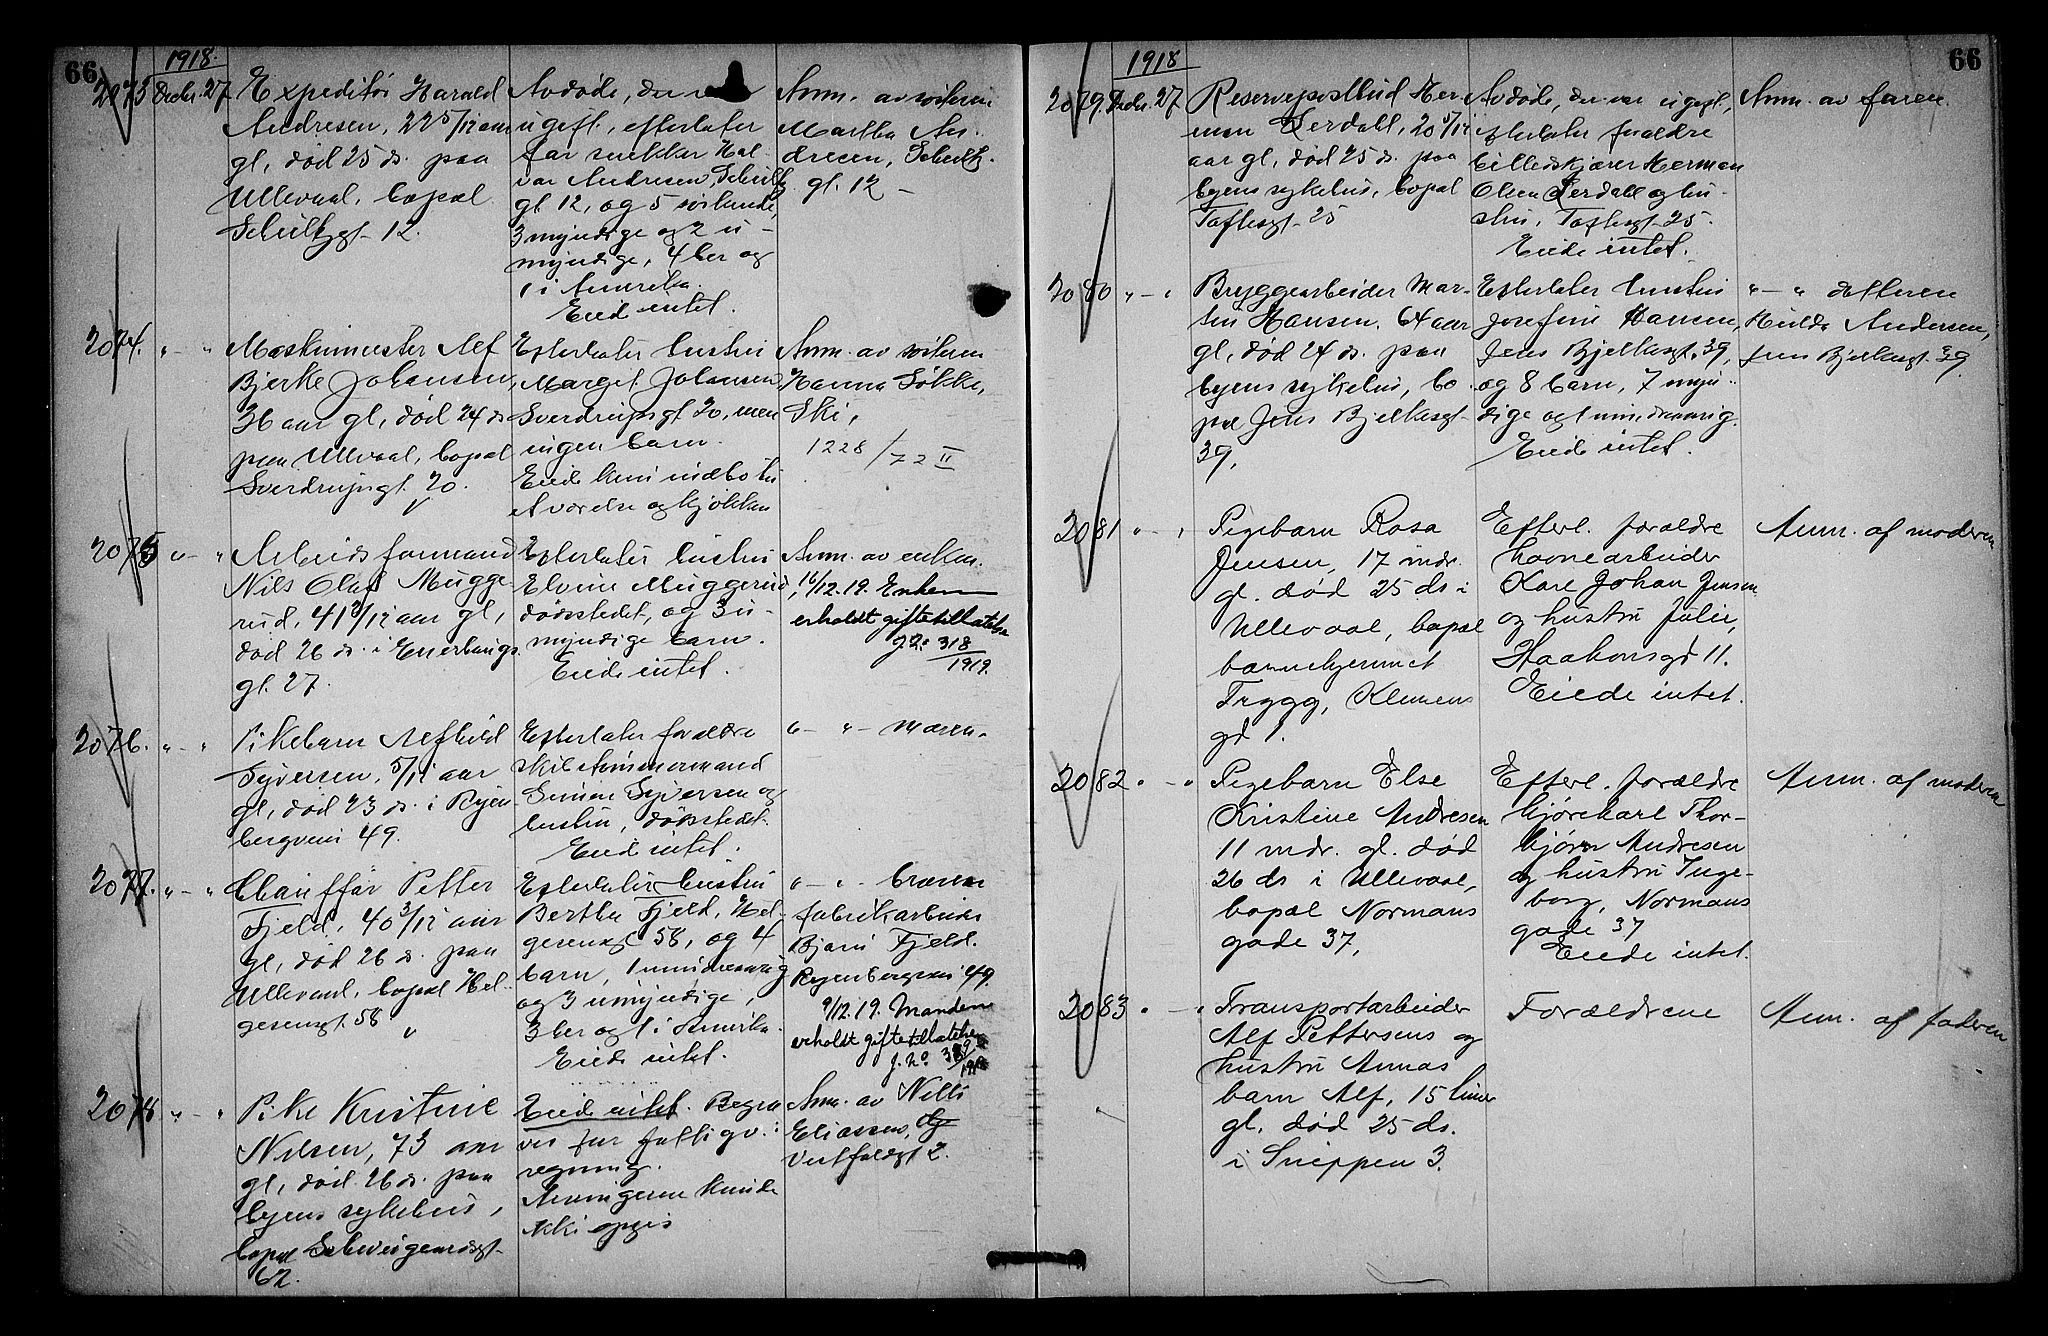 66
1918.
2073 Decbr. 27 Expeditør Harald
Andresen, 22 5/12 aar
gl, død 25 ds. paa
Ullevaal, bopæl
Schultzgt. 12.
Avdøde, der var
ugift, efterlater
far snekker Hal-
var Andresen, Schultz
gt 12, og 5 søskende,
3 myndige og 2 u-
myndige, 4 her og
1 i Amerika.
Eied intet.
Anm. av søsteren
Martha An-
dresen, Schultz.
gt. 12 -
2074. " - " Maskinmester Alf
Bjerke Johansen,
36 aar gl, død 24 ds
paa Ullevaal, bopæl
Sverdrupsgt. 20.
Efterlater hustru
Marget Johansen,
Sverdrupsgt 20, men
ingen barn.
Eiede kun indbo til
et værelse og kjøkken
Anm. av søsteren
Hanna Løkke,
Ski,
1228/72 II
2075 " - " Arbeidsformand
Nils Olaf Mugge-
rud, 41 8/12 aar gl,
død 26 ds. i Enerhaugs
gt. 27.
Efterlater hustru
Elvine Muggerud,
dødsstedet, og 3 u-
myndige barn.
Eiede intet.
Anm. av enken.
16/12.19. Enken
erholdt giftetillatelse
J.No 318
1919.
2076. " - " Pikebarn Alfhild
Syversen, 5/12 aar
gl, død 23 ds. i Ryen-
bergveien 49.
Efterlater forældre
Simen Syversen og
hustru, dødsstedet.
Eied intet.
" - " - moren.
2077. " - " Chauffør Petter
Fjeld, 40 3/12 aar
gl, død 26 ds. paa
Ullevaal, bopæl Hel-
gesensgt. 58
Efterlater hustru
Bertha Fjeld, Hel-
gesensgt 58, og 4
barn, 1 mindreaarig
og 3 umyndige,
3 her og 1 i Amerika.
Eiede intet.
" - " - broren
fabrikarbeider
Bjarne Fjeld.
Ryenbergveien 49.
9/12.19. Manden
erholdt giftetillatelse
J. No
2078. " - " Pike Kristine
Nilsen, 73 aar
gl, død 26 ds. paa
byens sykehus,
bopæl Schweigaardsgt-
62.
Eied intet. Begra-
ves for fattigv.:
regning.
Anmigeren kunde
ikke opgis
Anm. av Nilli
Eliassen,
Vestfoldgt 2.
66
1918
2079. Decbr. 27 Reservepostbud Her-
man Lerdahl, 20 5/12
aar gl, død 25 ds. paa
byens sykehus, bopæl
Toftesgt. 25
Avdøde, der var ugift,
efterlater forældre
billedskjærer Herman
Olsen Lerdahl og hu-
stru, Toftesgt. 25.
Eiede intet.
Anm. av faren.
2080 " - " Bryggearbeider Mar-
tin Hansen. 64 aar
gl, død 24 ds. paa
byens sykehus, bo-
pæl Jens Bjelkesgt-
39,
Efterlater hustru
Josefine Hansen,
Jens Bjelkesgt. 39,
og 8 barn, 7 myn-
dige og 1 mindreaarig.
Eiede intet.
" - " datteren
Hulda Andersen,
Jens Bjelkesgt. 39.
2081 " - " Pigebarn Rosa
Jensen, 17 mdr.
gl. død 25 ds i
Ullevaal, bopæl
barnehjemmet
Trygg, Klemens
gd 1.
Efterl. forældre
havnearbeider
Karl Johan Jensen
og hustru Julie,
Haakonsgd 11.
Eiede intet.
Anm. af moderen
2082 " - " Pigebarn Else
Kristine Andresen
11 mdr. gl. død
26 ds i Ullevaal,
bopæl Normans
gade 37,
Efterl. forældre
kjørekarl Thor-
bjørn Andresen
og hustru Inge-
borg, Normans
gade 37
Eiede intet.
Anm. af moderen
2083 " - " Transportarbeider
Alf Pettersens og
hustru Annas
barn Alf, 15 timer
gl, død 25 ds.
i Sneppen 3.
Forældrene
Anm. af faderen